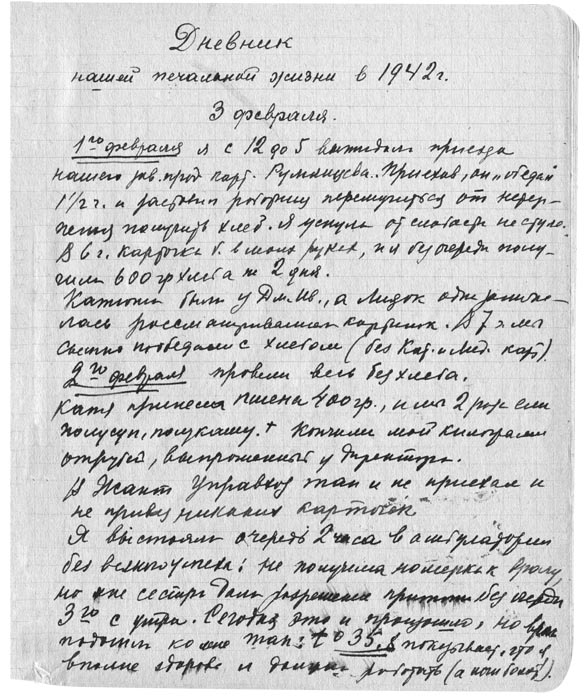 Дневник
нашей печальной жизни в 1942 г.
3 февраля.
1го февраля я с 12 до 5 выжидала приезда
нашего зав. прод. карт. Румянцева. Приехав, он „обедал
1½ г. и заставил публику перемучиться от нетер-
пения получить хлеб. Я уснула от слабости на стуле.
В 6 г. карточка б. в моих руках, и я без очереди полу-
чила 600 гр хлеба на 2 дня.
Катюша была у Дм. Ив., а Лидок одна занима-
лась рассматриванием картинок. В 7 г. мы
сытно пообедали с хлебом (без Кат. и Лид. карт).
2го февраля провели весь без хлеба.
Катя принесла пшена 400 гр., и мы 2 раза ели
полусуп, полукашу. + Кончили мой килограмм
отрубей, выпрошенный у директора.
В Жакт Управхоз так и не приехал и
не привез никаких карточек
Я выстояла очередь 2 часа в амбулатории
без всякого успеха: не получила номерка к врачу,
но мне сестра дала разрешение притти без очереди
3го с утра. Сегодня это и произошло, но врач
подошла ко мне так: t° 35,8 показывает, что я
вполне здорова и должна работать (а ноги болят).